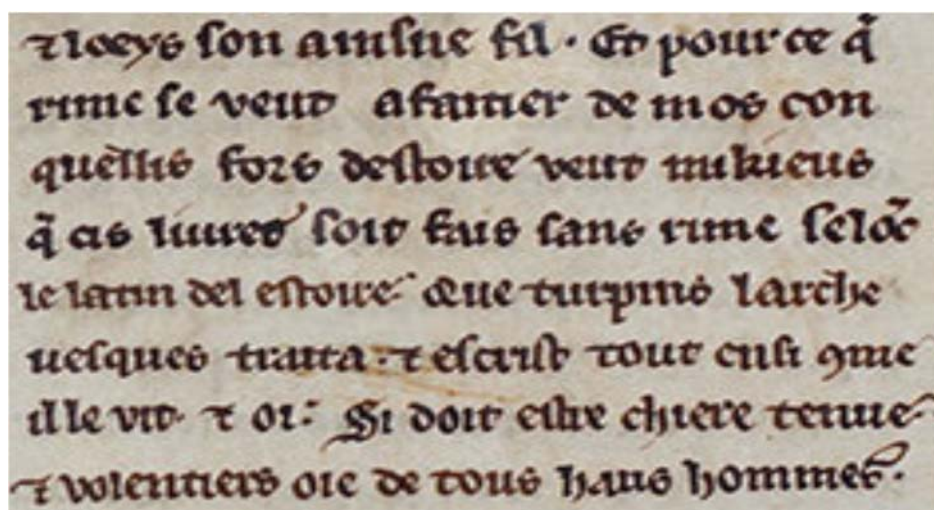 ⁊ loeys son ainsne fil · Et pour ce q̃
rime se veut afaitier de mos con
quellis fors destoire veut mikieus
q̃ cis liures soit fais sans rime selõc
le latin del estoire · Que turpins larche
uesques traita · ⁊ escrist tout ensi ꝯme
il le vit · ⁊ oi : Si doit estre chiere tenue ·
⁊ volentiers oie de tous haus hommes ·